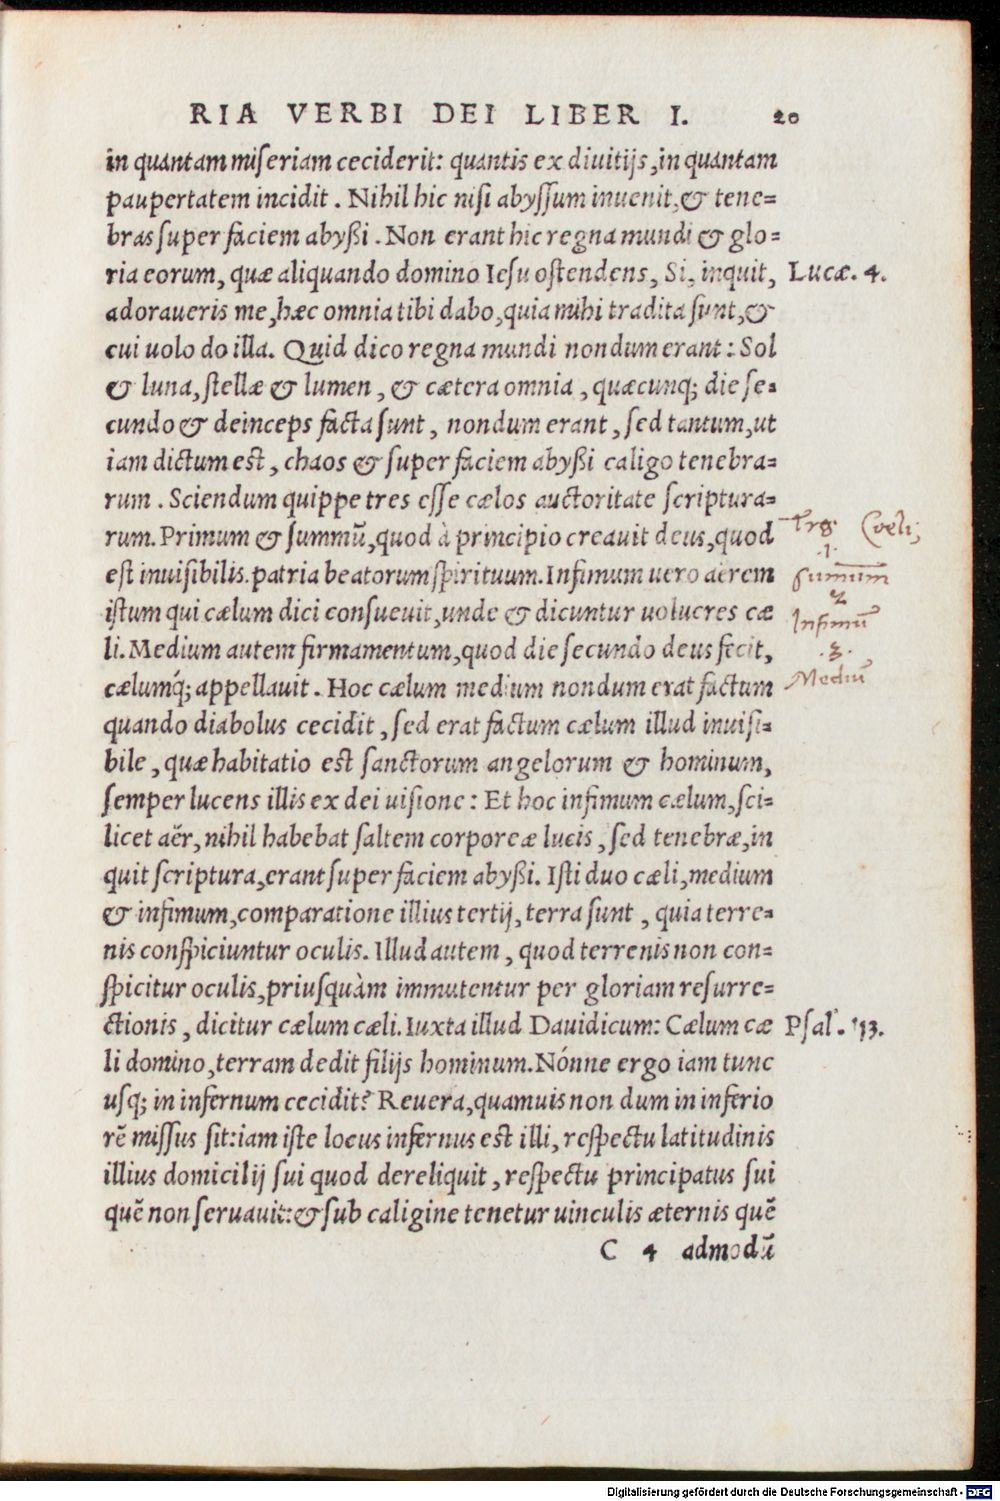 RIA VERBI DEI LIBER I. 20
in quantam miseriam ceciderit: quantis ex diuitijs, in quantam
paupertatem incidit. Nihil hic nisi abyssum inuenit, & tene=
bras super faciem abyßi. Non erant hic regna mundi & glo=
ria eorum, quæ aliquando domino Iesu ostendens, Si, inquit, Lucæ. 4.
adoraueris me, hæc omnia tibi dabo, quia mihi tradita sunt, &
cui uolo do illa. Quid dico regna mundi nondum erant: Sol
& luna, stellæ & lumen, & cætera omnia, quæcunq; die se=
cundo & deinceps facta sunt, nondum erant, sed tantum, ut
iam dictum est, chaos & super faciem abyßi caligo tenebra=
rum. Sciendum quippe tres esse cælos auctoritate scriptura=
rum. Primum & summũ, quod à principio creauit deus, quod
Coeli,
.1.
est inuisibilis patria beatorum spirituum. Infimum uero aërem
summum
2
istum qui cælum dici consueuit, unde & dicuntur uolucres cæ
Infimũ
li. Medium autem firmamentum, quod die secundo deus fecit,
.3.
cælumq́; appellauit. Hoc cælum medium nondum erat factum
Mediũ
quando diabolus cecidit, sed erat factum cælum illud inuisi=
bile, quæ habitatio est sanctorum angelorum & hominum,
semper lucens illis ex dei uisione: Et hoc infimum cælum, sci=
licet aër, nihil habebat saltem corporeæ lucis, sed tenebræ, in
quit scriptura, erant super faciem abyßi. Isti duo cæli, medium
& infimum, comparatione illius tertij, terra sunt, quia terre=
nis conspiciuntur oculis. Illud autem, quod terrenis non con=
spicitur oculis, priusquàm immutentur per gloriam resurre=
ctionis, dicitur cælum cæli. Iuxta illud Dauidicum: Cælum cæ Psal. 113.
li domino, terram dedit filijs hominum. Nónne ergo iam tunc
usq; in infernum cecidit? Reuera, quamuis non dum in inferio
rẽ missus sit: iam iste locus infernus est illi, respectu latitudinis
illius domicilij sui quod dereliquit, respectu principatus sui
quẽ non seruauit: & sub caligine tenetur uinculis æternis quẽ
C 4 admodũ
Digitalisierung gefördert durch die Deutsche Forschungsgemeinschaft - DFG